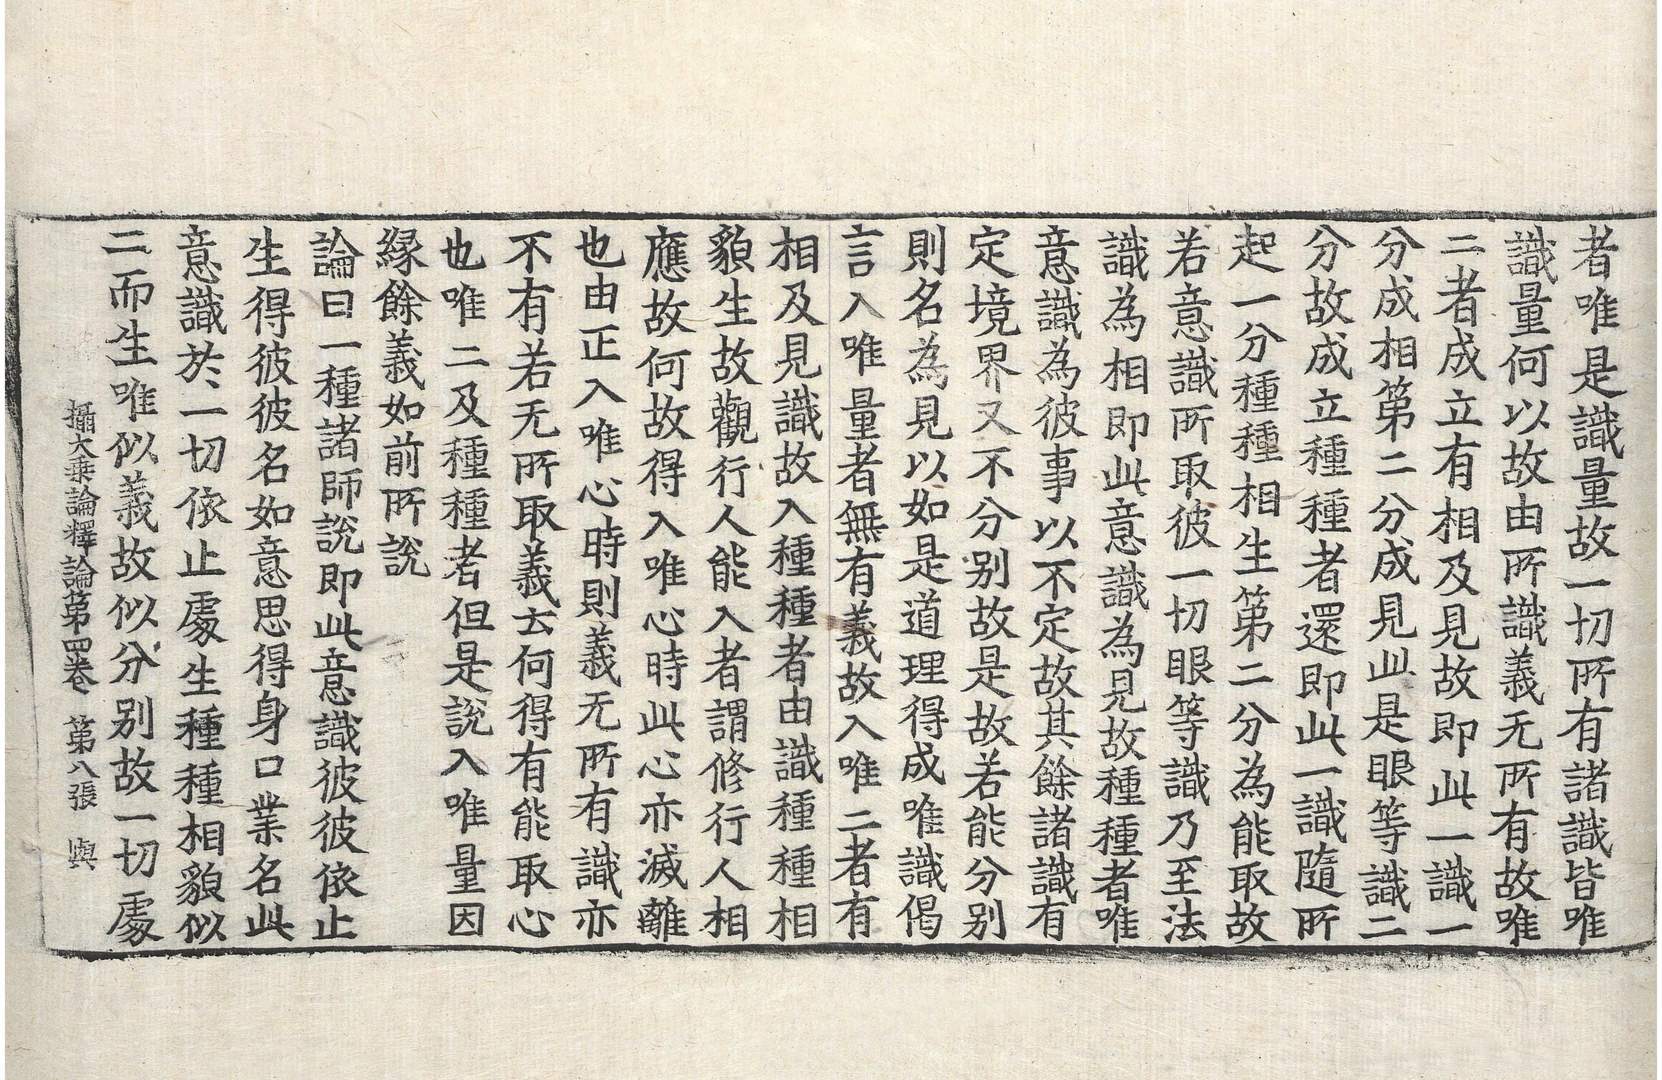 者唯是識量故一切所有諸識皆唯
識量何以故由所識義无所有故唯
二者成立有相及見故即此一識一
分成相第二分成見此是眼等識二
分故成立種種者還即此一識隨所
起一分種種相生第二分為能取故
若意識所取彼一切眼等識乃至法
識為相即此意識為見故種種者唯
意識為彼事以不定故其餘諸識有
定境界又不分別故是故若能分別
則名為見以如是道理得成唯識偈
言入唯量者無有義故入唯二者有
相及見識故入種種者由識種種相
貌生故觀行人能入者謂修行人相
應故何故得入唯心時此心亦滅離
也由正入唯心時則義无所有識亦
不有若无所取義去何得有能取心
也唯二及種種者但是說入唯量因
緣餘義如前所說
論曰一種諸師說即此意識彼彼依止
生得彼彼名如意思得身口業名此
意識於一切依止處生種種相貌似
二而生唯似義故似分別故一切處
攝大乘論釋論第四卷 第八張 輿